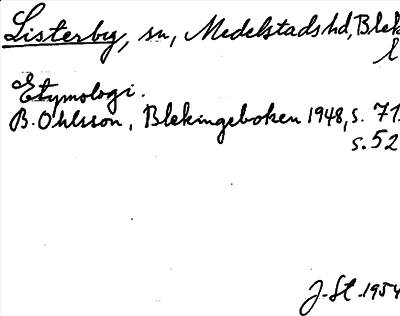 Listerby, sn, Medelstads hd, Blek
l
Etymologi.
B. Ohlsson, Blekingeboken 1948, s. 71
s. 52
J. St. 1954